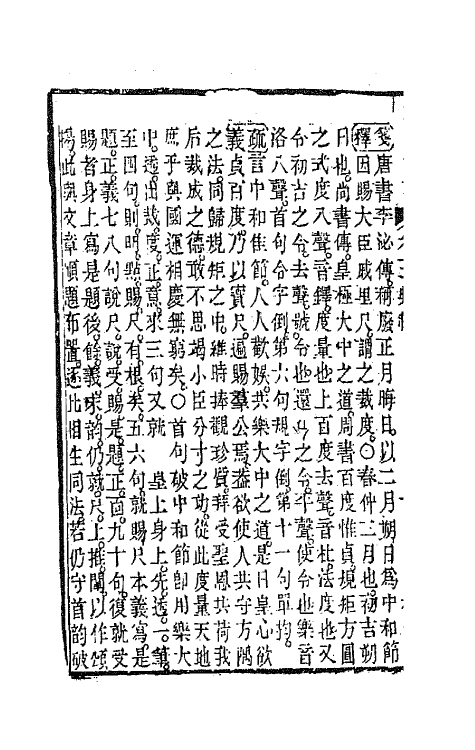 箋唐書李泌傳稱廢正月晦日以二月朔日爲中和節
釋因賜大臣戚里尺謂之裁度〇春仲二月也初吉朔
日也尚書傳皇極大中之道周書百度惟貞規矩方圓
之式度入聲音鐸度量也上百度去聲音杜法度也又
令初吉之令去聲號令也還以之令平聲使令也樂音
洛入聲首句令字倒第六句規字倒第十一句單拘
疏言中和佳節人人歡娛共樂大中之道是日皇心欲
義貞百度乃以寶尺遍賜羣公焉葢欲使人共守方隅
之法同歸規矩之中電維時捧觀珍質拜受聖恩共荷我
后裁成之德敢不思竭小臣分寸之功從此度量天地
庶乎與國運相慶無窮矣〇首句破中和節卽用樂大
中透出裁度正意求三句又就 皇上身上先透一筆
至四句則明點賜尺有根矣五六句就賜尺本義寫是
題正義七八句說尺說受賜是題正面九十句復就受
賜者身上寫是題後餘義求韵仍就尺上推開以作頌
揚此與文章順題布置逐比相生同法若仍守首韵破